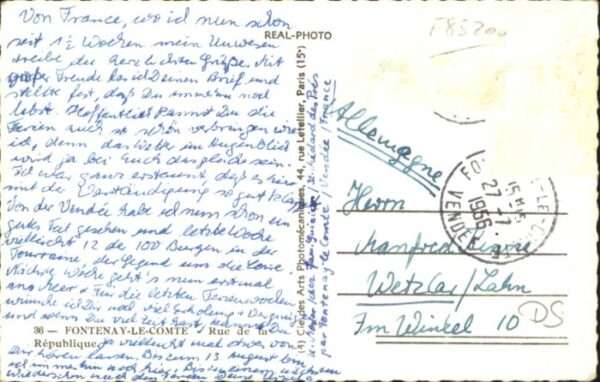 Von France, wo ich nun schon
seit 1½ Wochen mein Unwesen
treibe die herzlichsten Grüße. Mit
großer Freude las ich Deinen Brief und
stellte fest, daß Du immer noch
lebst. Hoffentlich kannst Du die
Ferien auch so schön verbringen wie
ich, denn das liebe im Augenblick
wird ja bei Euch dasgleiche sein.
Ich war ganz erstaunt, daß es hier
mit der Verständigung so gut klappt
Von der Vendée habe ich nun schon ein
gutes Teil gesehen und letzte Woche
vielleicht 12 de 100 Burgen in der
Touraine, der Gegend um die Loire.
Nächste Woche geht's nun erstmal
ans Meer. Für die letzten Ferienwochen
wünsche ich Dir noch viel Erholung u. Vergnügen
und wenn Du viel Zeit hast kannst Du
ja vielleicht mal etwas von
Dir hören lassen. Bis zum 13. August bin
ich immer noch hier. Bis
wiedersehen nach den Ferien Deine
36 - FONTENAY-LE-COMTE - Rue de la
République
REAL-PHOTO
(4) Cie des Arts Photomécaniques, 44, rue Letellier, Paris (15e)
St. Médard des Prés
par Fontenay le Comte / Vendée / France
F85200
Allemagne
27-7
1966
VENDÉE
Herrn
Manfred
Wetzlar/Lahn
Im Winkel 10
DS